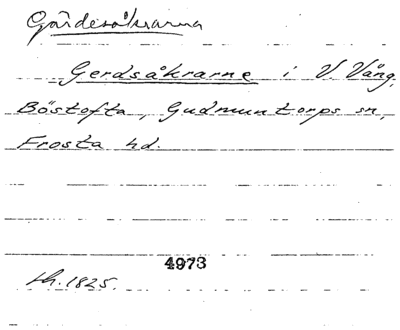 Gärdesåkrarna
Gerdsåkrarne i V. Vång,
Böstofta, Gudmuntorps sn,
Frosta hd.
4973
sh. 1825.